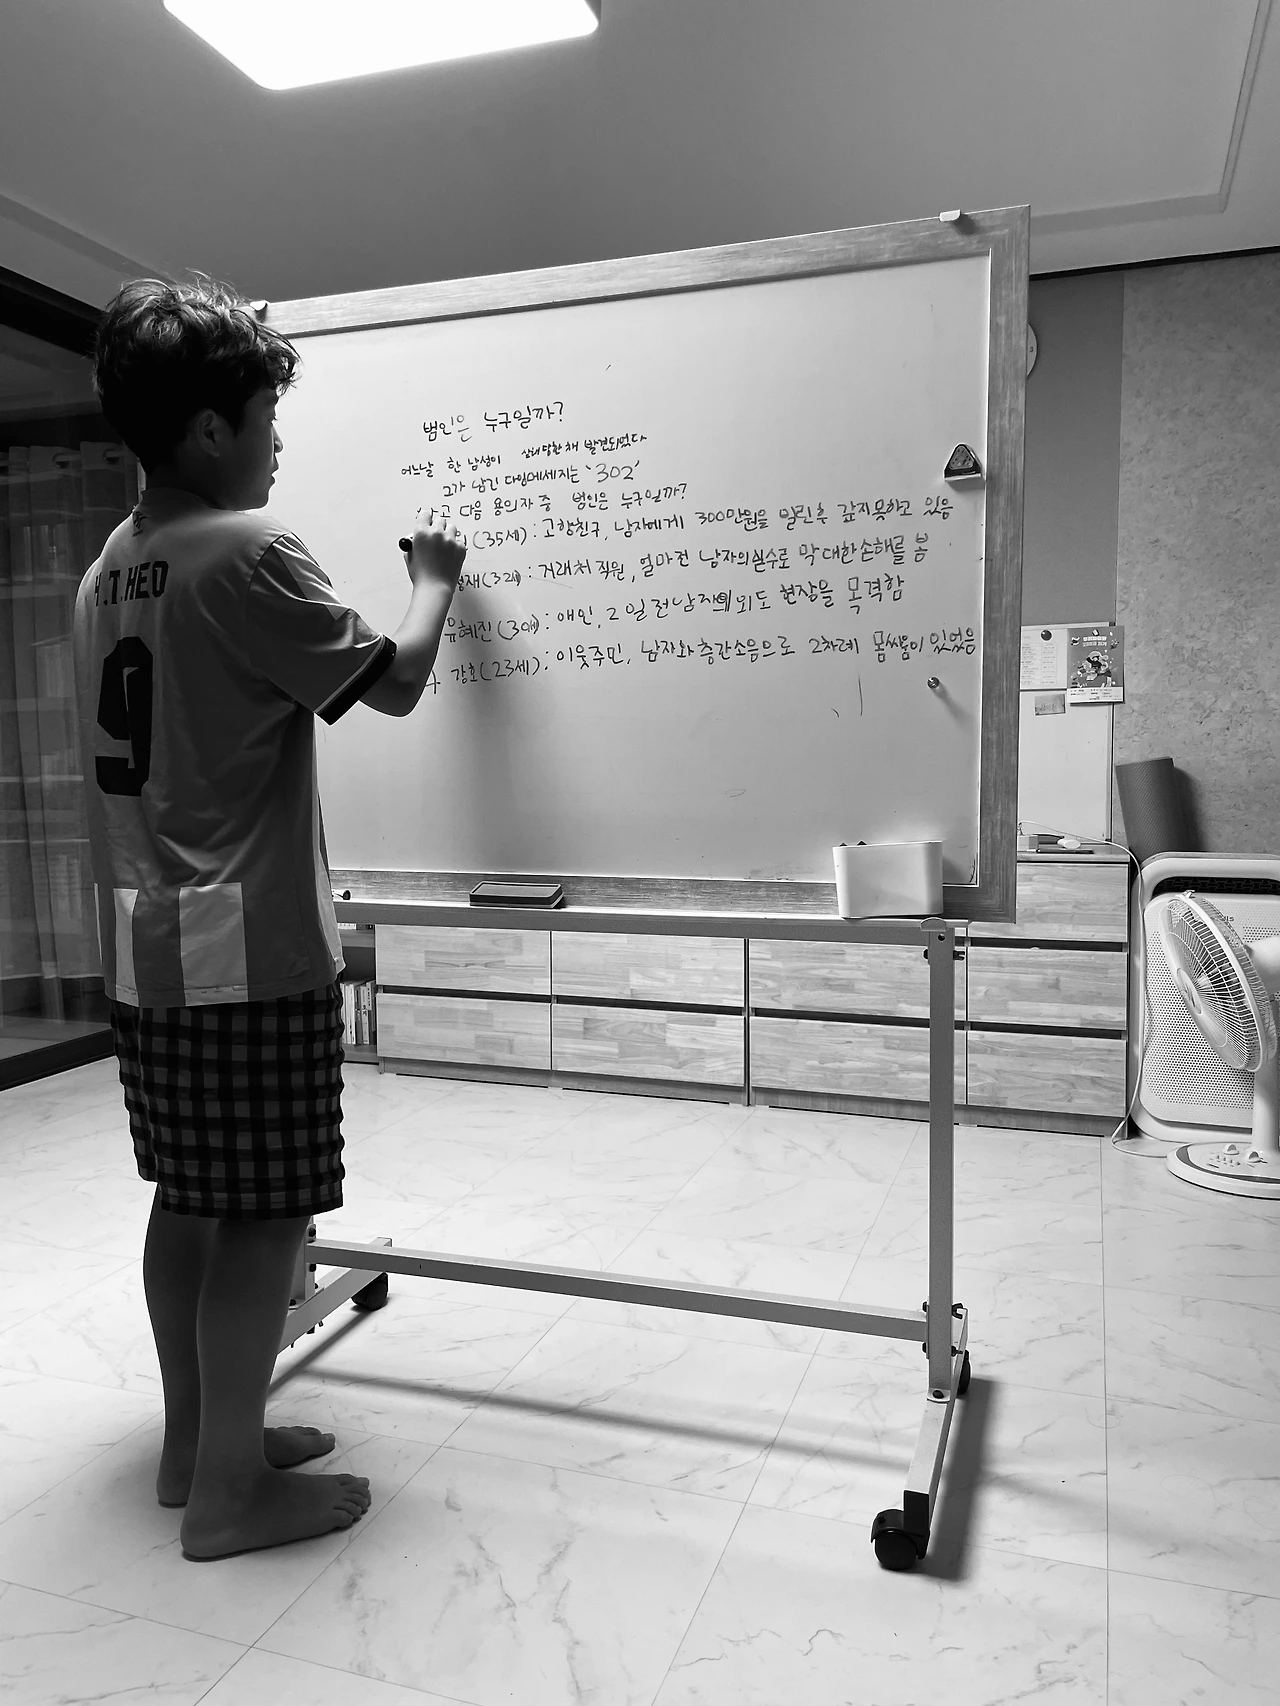 범인은 누구일까?
어느날 한 남성이 살해당한채 발견되었다
그가 남긴 다잉메세지는 '302'
다음 용의자 중 범인은 누구일까?
(35세) : 고향친구, 남자에게 300만원을 빌린후 갚지못하고 있음
(32세) : 거래처 직원, 얼마전 남자의 실수로 막대한 손해를 봄
유혜진 (30세) : 애인, 2일전 남자의 외도 현장을 목격함
강호 (23세) : 이웃주민, 남자와 층간소음으로 2차례 몸싸움이 있었음
H.T.HEO
9